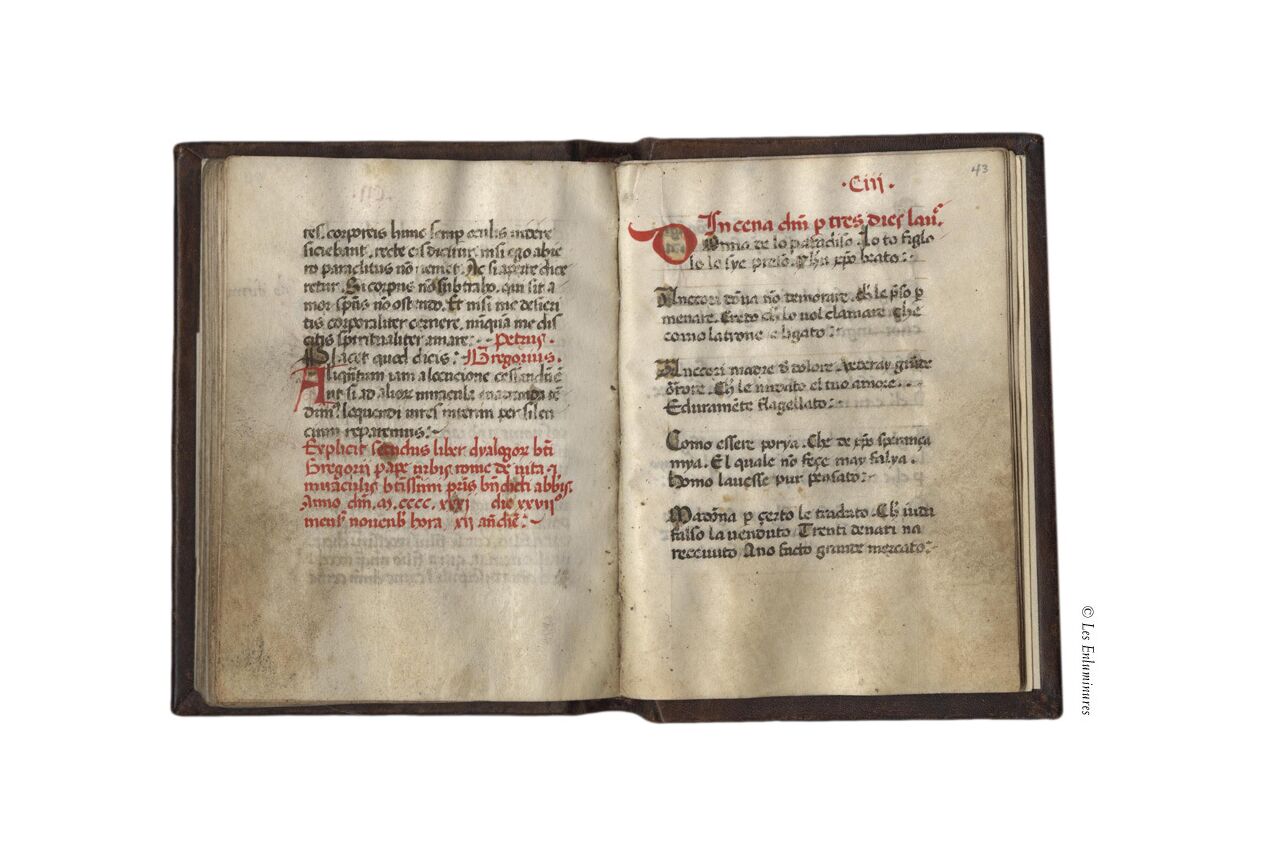 res. corporeis hunc semp oculis videre
siciebant. recte eis dicitur. nisi ego abie
ro paraclitus nō veniet. Ac si aperte dice
retur. Si corpus nō subtraho. quis sit a
mor spūs nō ostendo. Et nisi me desieri
tis corporaliter cernere. nūquā me dis
citis spiritualiter amare: Petrus.
Placet quod dicis: Gregorius.
Aliqntum iam a locucione cessandū ē
Aut si ad alior miracula enarranda
dim? loquendi vires interim per silen
cium reparemus:
Explicit secundus liber dyalogor bti
Gregorii pape urbis rome de vita
miraculis btissim pris bndicti abbis.
Anno dm. M. cccc. xxxi die xxvii
mens novenb hora xii
43
·Ciii·
In cena dm p tres dies lau
Donna de lo paradiso. Lo to figlo
lo le sye preso. xpo beato:
Anccori dōna nō demorare. Ch le pso p
menare. Credo ch lo vol clamare. Che
como latrone e ligato:
Anccori madre d dolore. grāde
. Ch le el tuo amore.
E duramēte flagellato:
Como essere porya. Che de xpo sperança
mya. El quale nō feçe may falya.
homo lauesse pur pensato:
Madōna p çerto le tradato. Ch iuda
falso la venduto Trenti denari na
receuuto Ano facto grande mercato:
© Les Enluminures